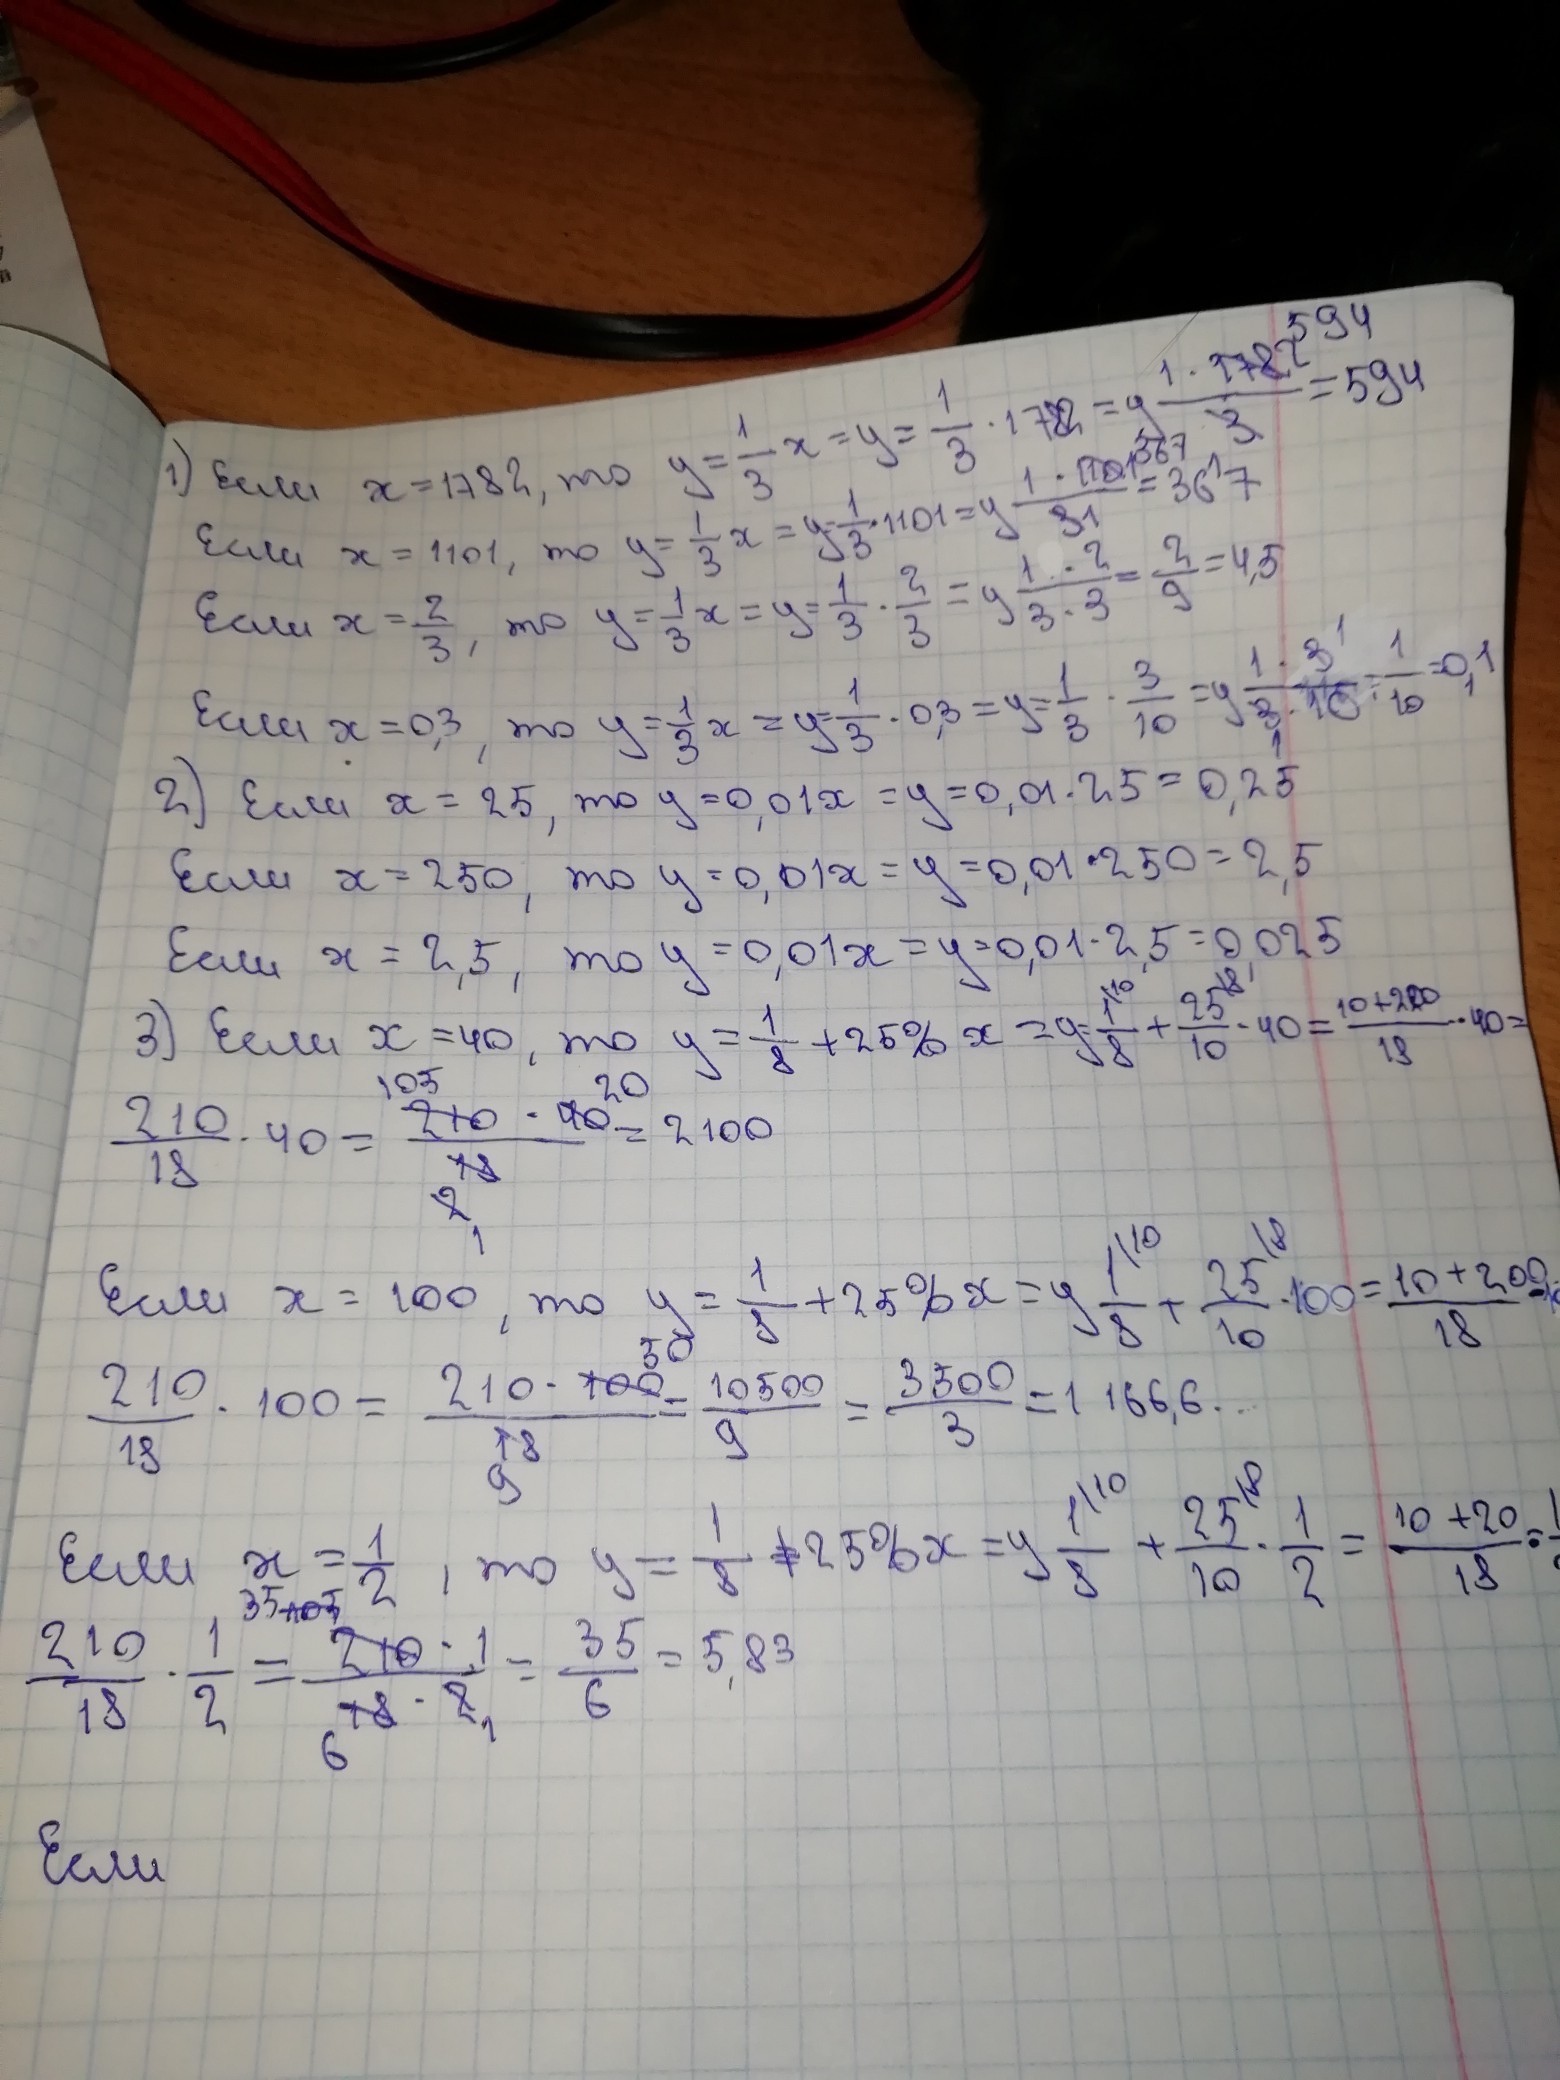 1) Если x=1782, то y=1/3 x = y= 1/3 · 1782 = y 1·1782 594 / 3 = 594
Если x=1101, то y= 1/3 x = y= 1/3 · 1101 = y 1·1101 367 / 3 1 = 367
Если x= 2/3, то y= 1/3 x = y= 1/3 · 2/3 = y 1·2 / 3·3 = 2/9 = 4,5
Если x=0,3, то y= 1/3 x = y= 1/3 · 0,3 = y= 1/3 · 3/10 = y 1·3 1 / 3·10 1 = 1/10 = 0,1
2) Если x = 25, то y=0,01x = y=0,01·25 = 0,25
Если x=250, то y=0,01x = y=0,01·250=2,5
Если x = 2,5, то y=0,01x = y=0,01·2,5=0,025
3) Если x=40, то y= 1/8 +25% x = y= 1\10 / 8 + 25\8 / 10 · 40 = 10+200 / 18 · 40 =
210/18 · 40 = 105 210 · 40 20 / 18 2 1 = 2100
Если x = 100, то y = 1/8 +25% x = y 1\10 / 8 + 25\8 / 10 · 100 = 10+200 / 18
210/18 · 100 = 210 · 100 50 / 18 9 = 10500/9 = 3500/3 = 1 166,6...
Если x = 1/2, то y = 1/8 +25% x = y 1\10 / 8 + 25\8 / 10 · 1/2 = 10+20 / 18
210/18 · 1/2 = 35 105 210 · 1 / 6 18 · 2 1 = 35/6 = 5,83
Если